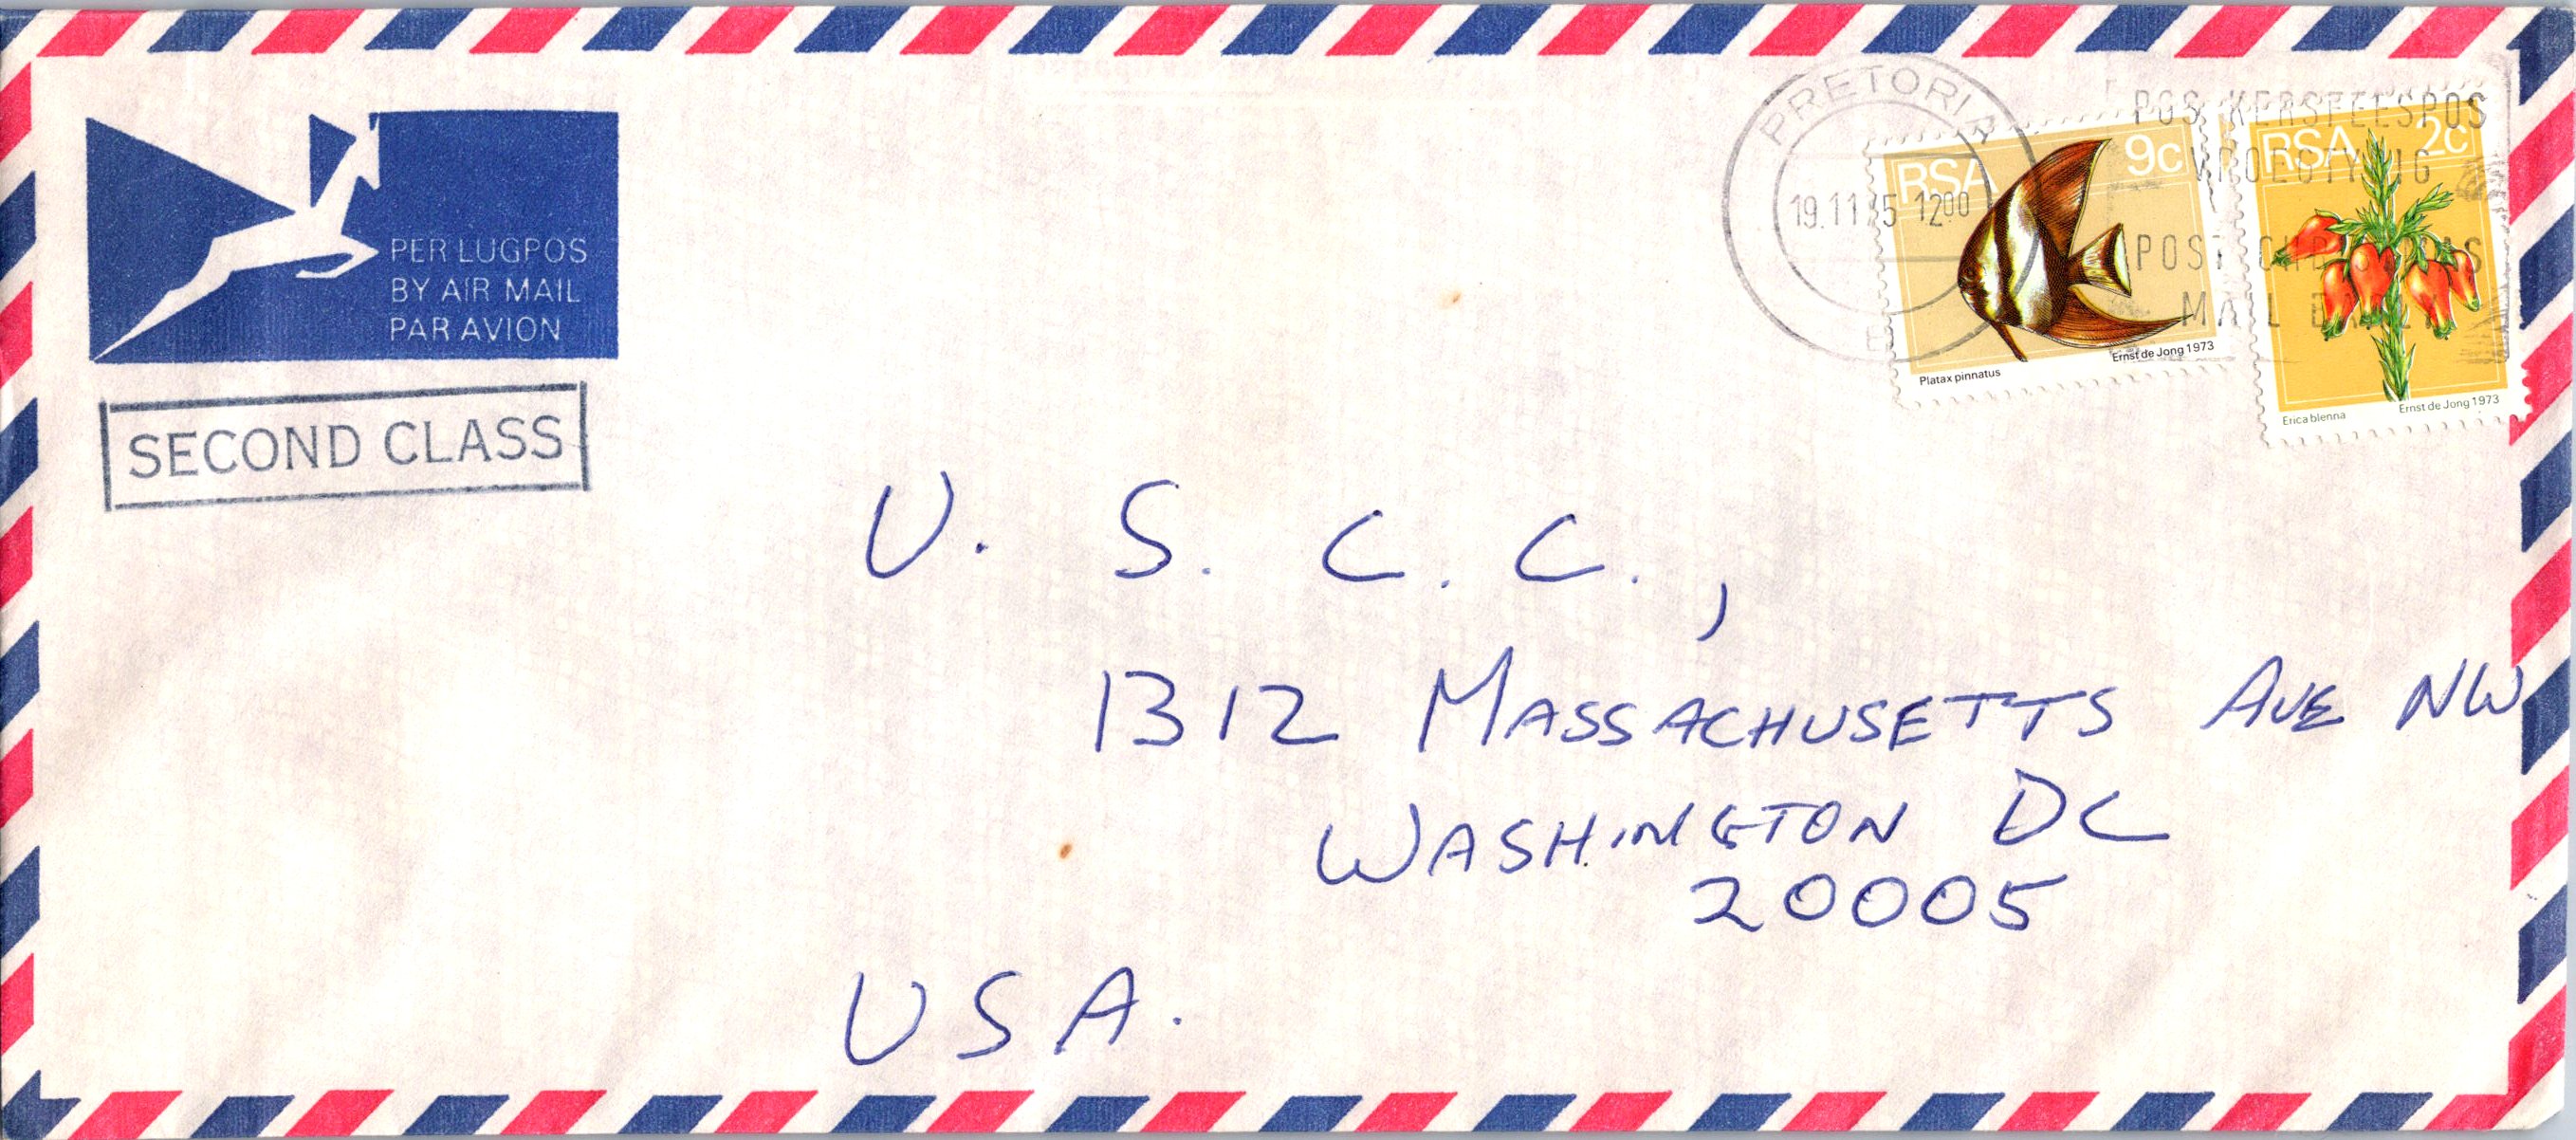 PER LUGPOS
BY AIR MAIL
PAR AVION
SECOND CLASS
PRETORIA
19.11 5 1200
POS KERSFEESPOS
VROEGTYDIG
POST CHRISTMAS
MAIL EARLY
RSA 9c
Platax pinnatus
Ernst de Jong 1973
RSA 2c
Erica blenna
Ernst de Jong 1973
U. S. C. C.,
1312 MASSACHUSETTS AVE NW
WASHINGTON DC
20005
USA.